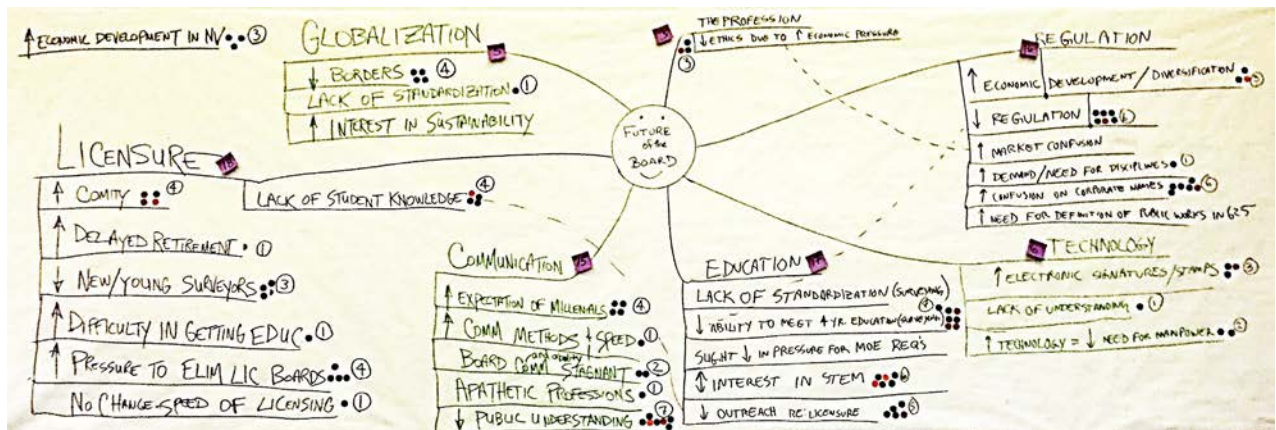 ↑ ECONOMIC DEVELOPMENT IN NV ③
GLOBALIZATION
↓ BORDERS ④
LACK OF STANDARDIZATION ①
↑ INTEREST IN SUSTAINABILITY
THE PROFESSION
↓ ETHICS DUE TO ↑ ECONOMIC PRESSURE
③
REGULATION
↑ ECONOMIC DEVELOPMENT/DIVERSIFICATION
↓ REGULATION ⑥
↑ MARKET CONFUSION
↑ DEMAND/NEED FOR DISCIPLINES ①
↑ CONFUSION ON CORPORATE NAMES ⑥
↑ NEED FOR DEFINITION OF PUBLIC WORKS IN 625
FUTURE
of the
BOARD
LICENSURE
18
↑ COMITY ④
↑ DELAYED RETIREMENT ①
↓ NEW/YOUNG SURVEYORS ③
↑ DIFFICULTY IN GETTING EDUC. ①
↑ PRESSURE TO ELIM LIC BOARDS ④
NO CHANGE-SPEED OF LICENSING ①
LACK OF STUDENT KNOWLEDGE ④
COMMUNICATION
15
↑ EXPECTATION OF MILLENIALS ④
↑ COMM METHODS ↓ SPEED ①
BOARD COMM STAGNANT ②
APATHETIC PROFESSIONS ①
↓ PUBLIC UNDERSTANDING ⑦
EDUCATION
LACK OF STANDARDIZATION (SURVEYING)
↓ ABILITY TO MEET 4 YR EDUCATION (SURVEYORS)
SLIGHT ↓ IN PRESSURE FOR MOE REQ'S
↕ INTEREST IN STEM ⑥
↓ OUTREACH RE: LICENSURE ⑤
TECHNOLOGY
6
↑ ELECTRONIC SIGNATURES/STAMPS ③
LACK OF UNDERSTANDING ①
↑ TECHNOLOGY = ↓ NEED FOR MANPOWER ②